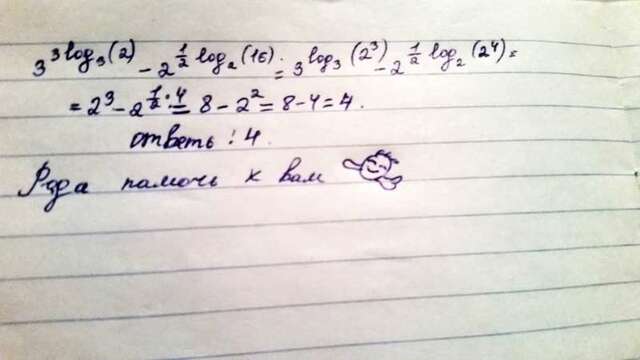 3^3log₃(2) - 2^½log₂(16) = 3^log₃(2³) - 2^½log₂(2⁴) =
= 2³ - 2^½·4 = 8 - 2² = 8 - 4 = 4.
ответь : 4.
Рада памочь к вам